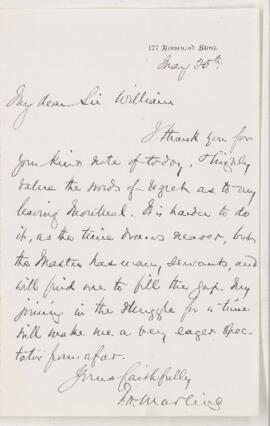 177 Drummond Street.
May 25th
My dear Sir William
I thank you for
your kind note of today. I highly
value the words of regret as to my
leaving Montreal. It is harder to do
it, as the time draws nearer, but
the Master has many servants, and
will find me to fill the gap. My
joining in the struggle for a time
will make me a very eager spec-
tator from afar.
Yours faithfully
Marling